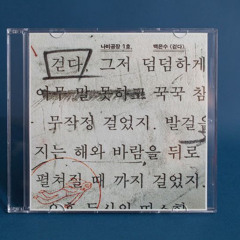 나비공장 1호.
백은수 (걷다).
걷다. 그저 덤덤하게
아무 말 못하고 꾹꾹 참
무작정 걸었지. 발걸음
지는 해와 바람을 뒤로
펼쳐질 때 까지 걸었지.